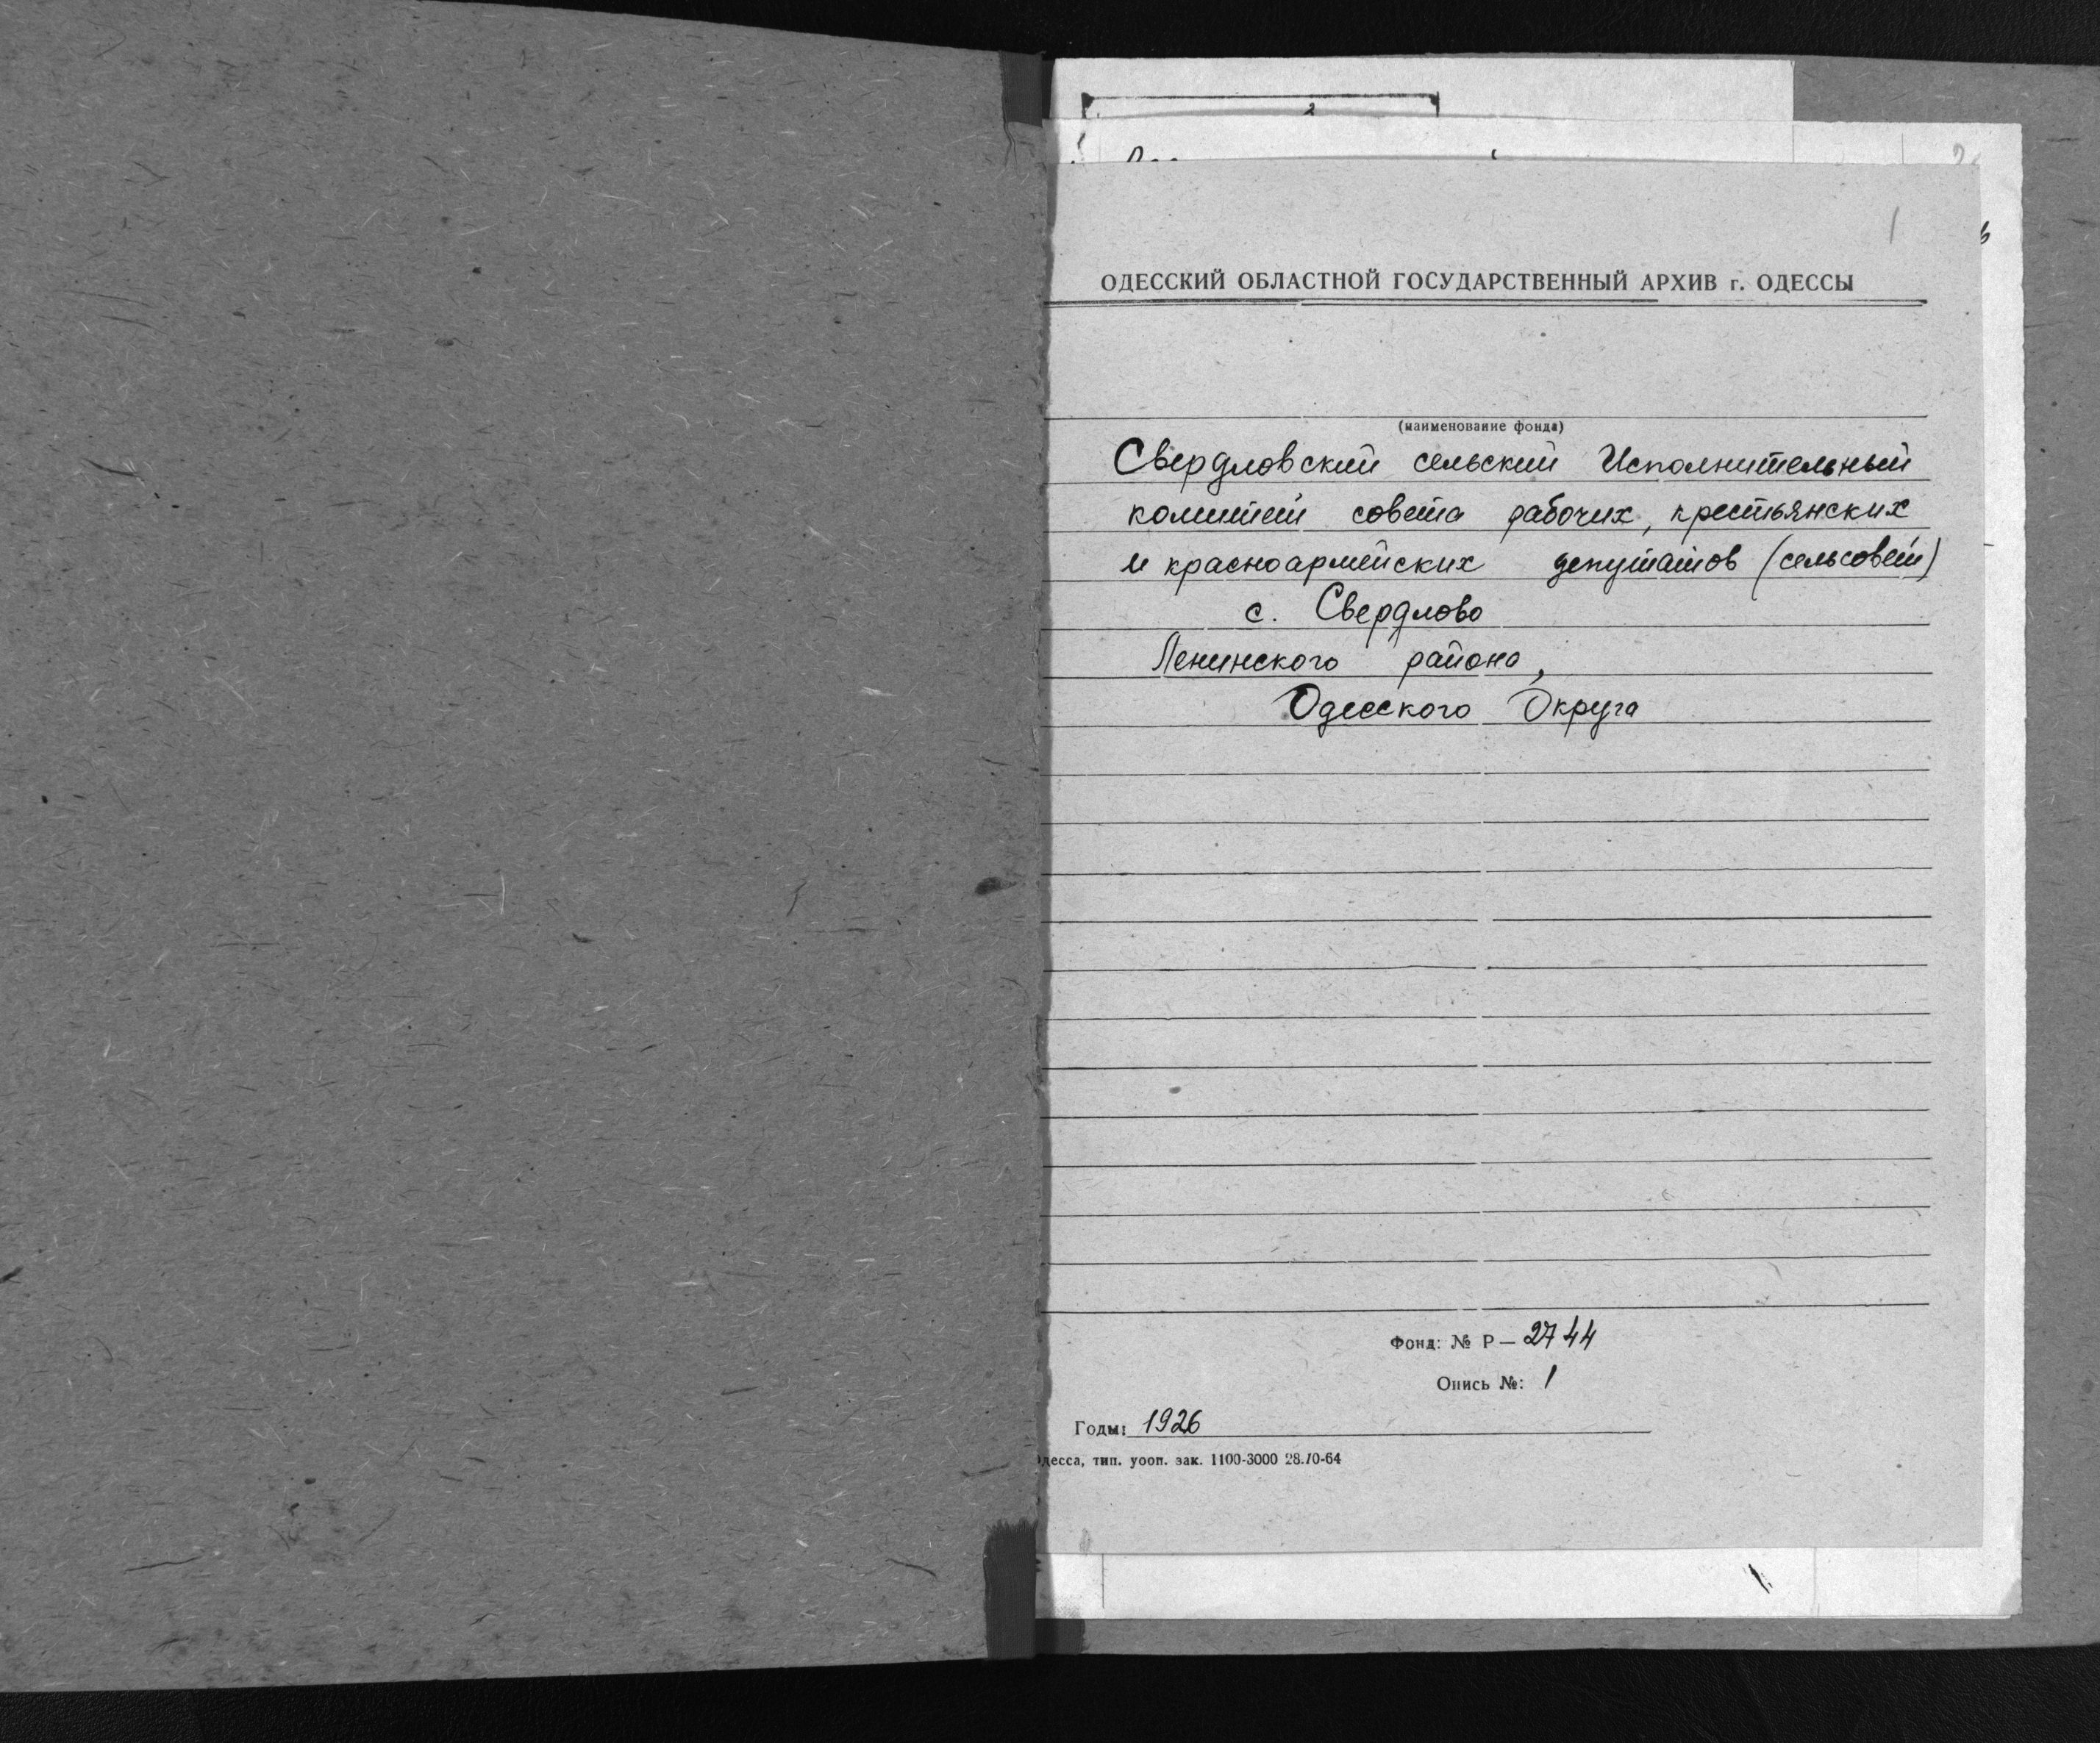 1
ОДЕССКИЙ ОБЛАСТНОЙ ГОСУДАРСТВЕННЫЙ АРХИВ г. ОДЕССЫ
(наименование фонда)
Свердловский сельский Исполнительный
комитет совета рабочих, крестьянских
и красноармейских депутатов (сельсовет)
с. Свердлово
Ленинского района,
Одесского Округа
Фонд: № Р — 2744
Опись №: 1
Годы: 1926
Одесса, тип. уооп. зак. 1100-3000 28.10-64